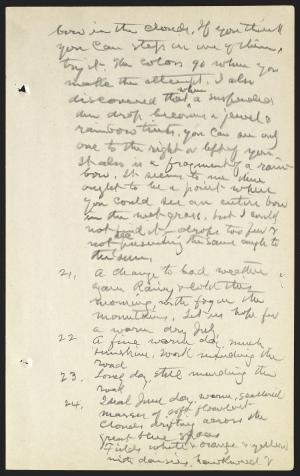 bow in the clouds. If you think
you can step in one of them,
try it. The colors go when you
make the attempt. I also
discovered that when a suspended
dew drop becomes a jewel of
rainbow tints, you can see only
one to the right or left of you.
It also is a fragment of a rain-
bow. It seems to me there
ought to be a point where
you could see an entire bow
in the wet grass, but I could
not find it, drops too few &
not presenting the same angle to
the sun.
21. A change to bad weather
again Rainy & cold this
morning, with fog on the
mountains. Let us hope for
a warm dry July
22 A fine warm day, much
sunshine. Work mending the
road
23. Lovely day, still mending the
road
24. Ideal June day, warm, scattered
masses of soft
clouds drifting across the
great blue spaces
Fields white & orange & yellow
with daisies, hawkweed &